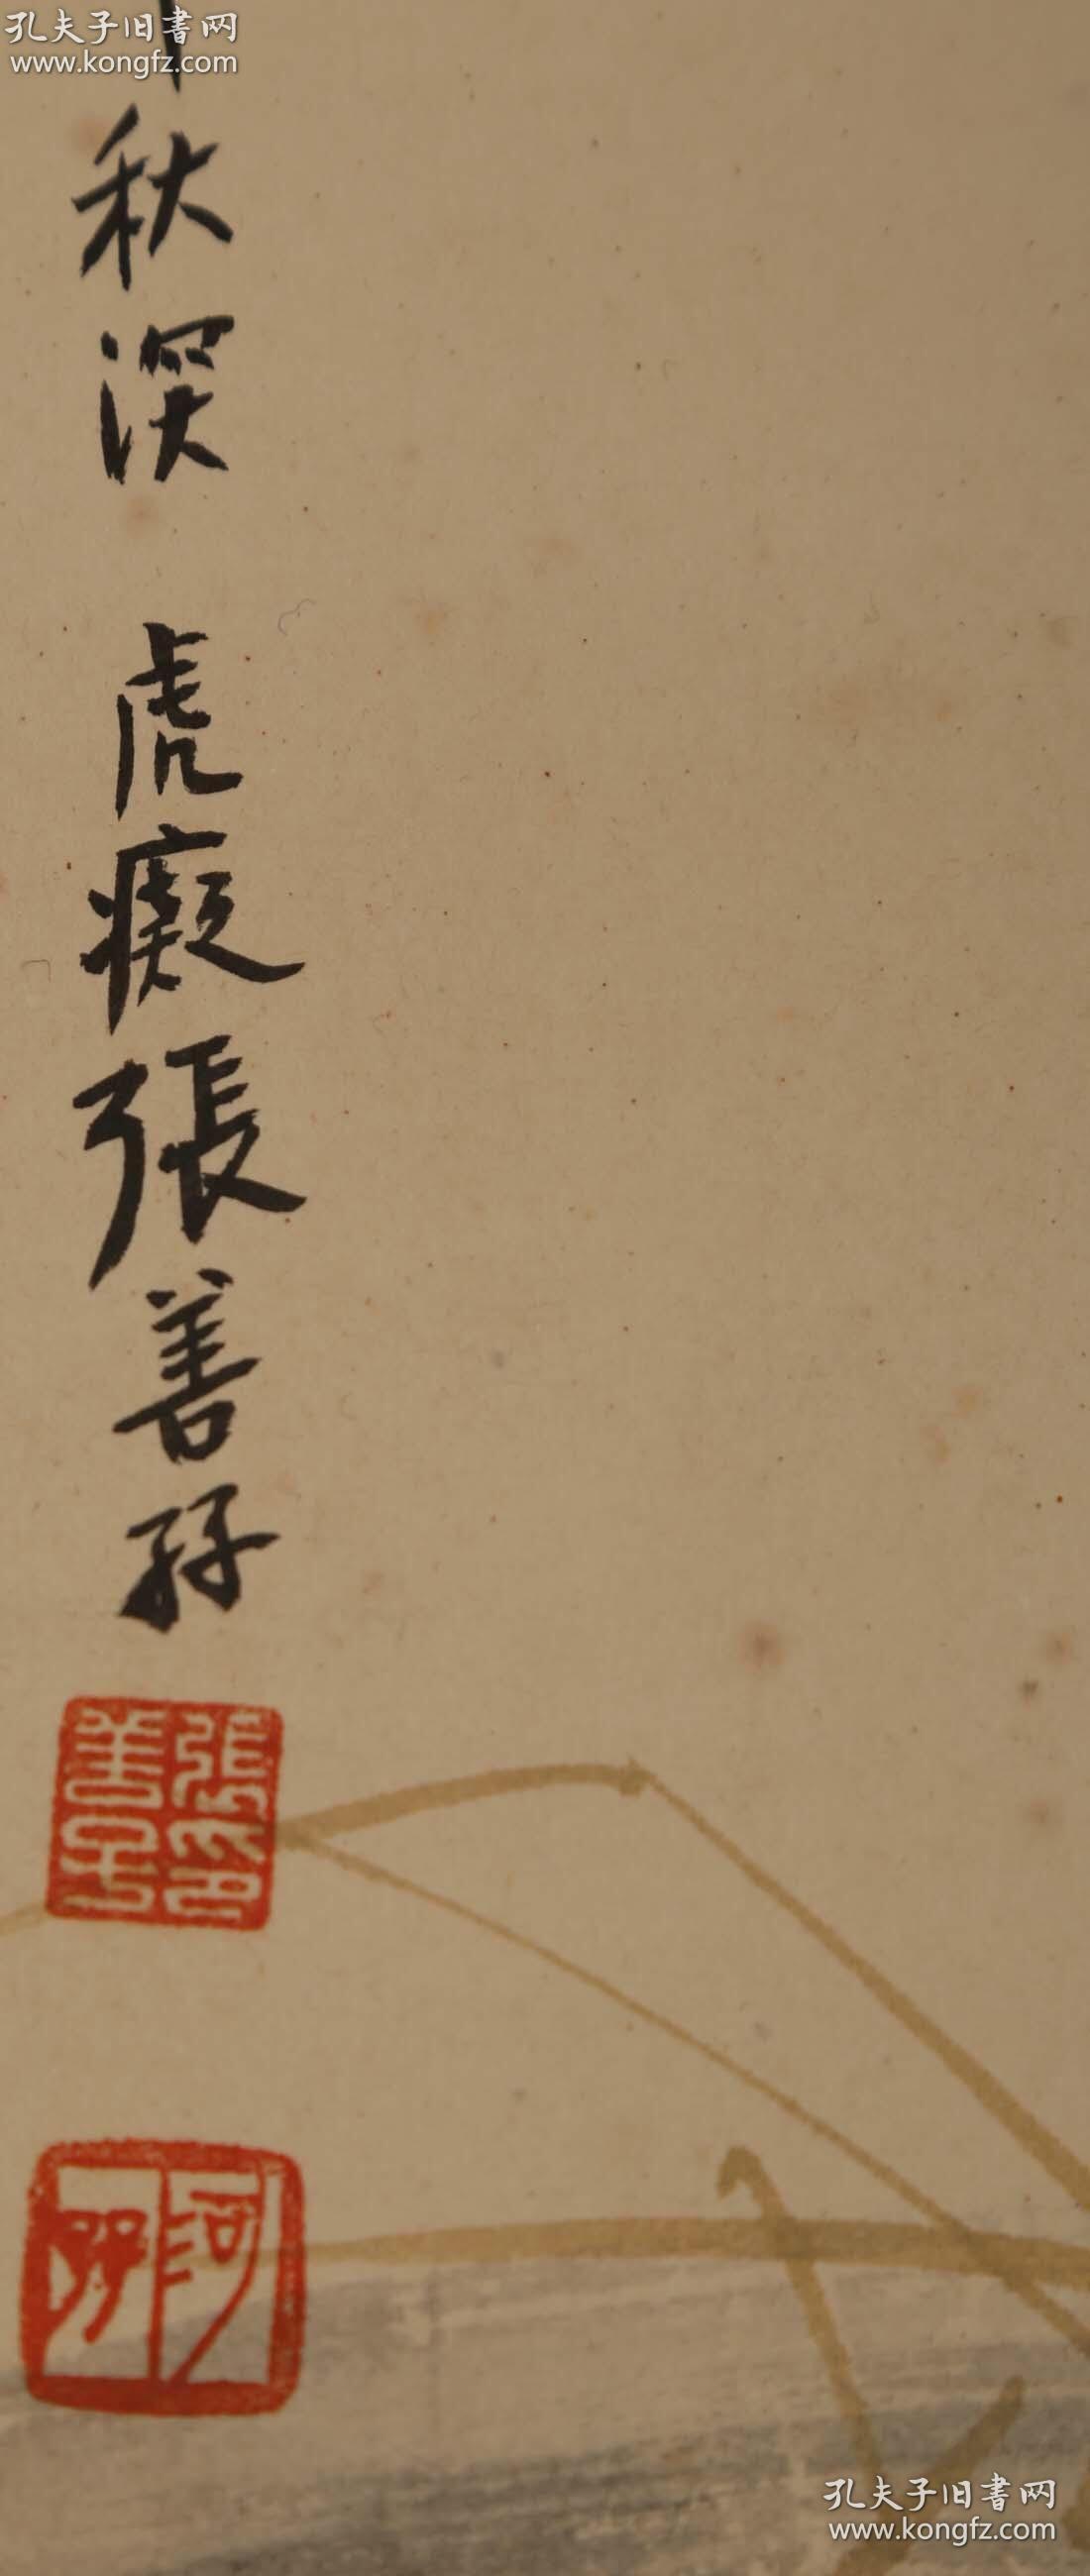 孔夫子旧书网
www.kongfz.com
秋深 虎癡張善孖
張印善孖
孔夫子旧书网
www.kongfz.com